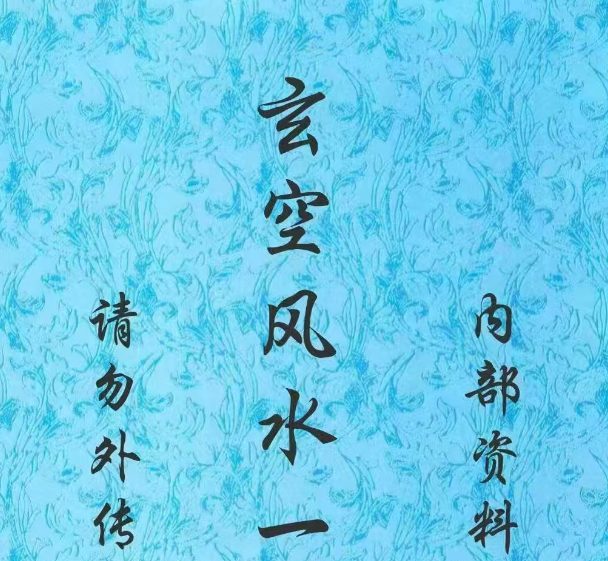 内部资料
玄空风水一
请勿外传